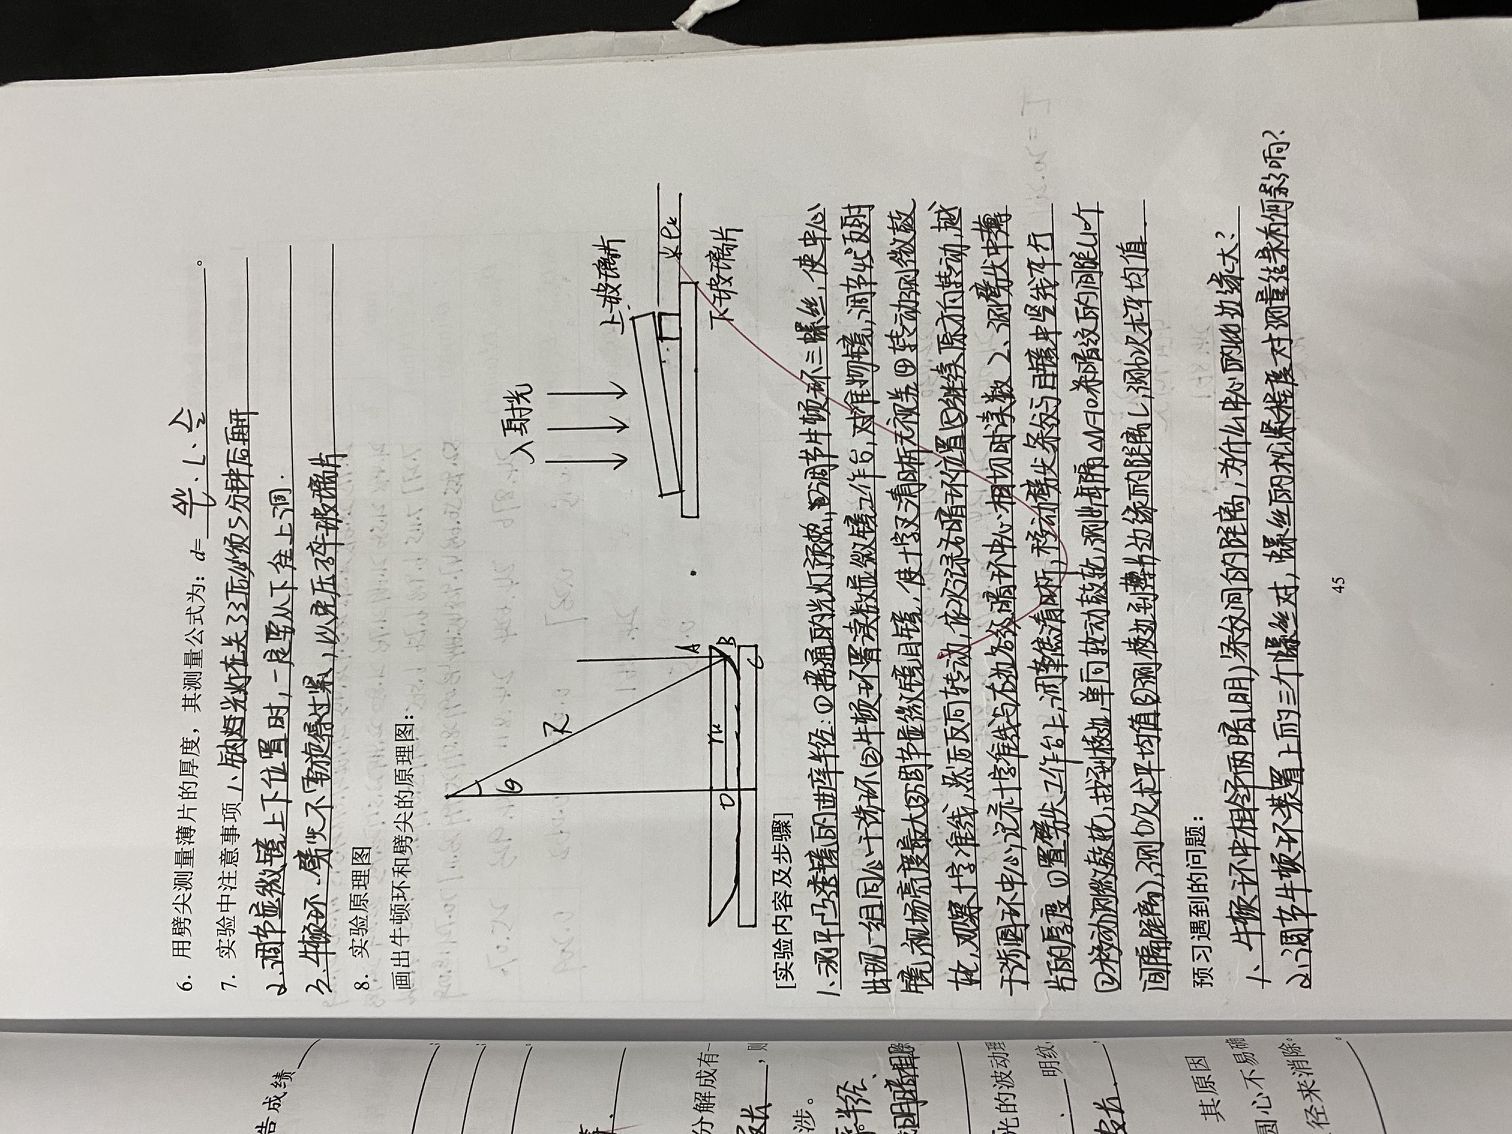 告成绩
6. 用劈尖测量薄片的厚度，其测量公式为：d= ΔN/l · L · λ/2 。
7. 实验中注意事项 1. 钠灯光灯在关了之后必须5分钟后再开
2. 调节显微镜上下位置时，一定要从下往上调.
3. 牛顿环、劈尖不需旋得过紧，以免压碎玻璃片
8. 实验原理图
画出牛顿环和劈尖的原理图：
θ
R
入射光
上玻璃片
ek
A
rk
O
B
C
下玻璃片
分解成有一
，则
涉。
半径、
光的波动理
明纹
其原因
圆心不易确
径来消除。
[实验内容及步骤]
1. 测平凸透镜的曲率半径：①接通的光灯预热，调节牛顿环三螺丝，使中心
出现一组同心干涉环②牛顿环置读数显微镜工作台，对准物镜，调节45°反射
镜，视场亮度最大③调节显微镜目镜，使十字叉清晰无视差④转动测微鼓
轮，观察十字准线，然后反向转动，依次记录右暗环位置⑤继续原方向转动，越
干涉圆环中心，记录十字准线与右边各级暗环中心相切时读数 2、测劈尖中薄
片的厚度 ①置劈尖工作台上，调聚焦清晰，移动劈尖条纹与目镜中竖线平行
②移动测微鼓轮，找到棱边，单向转动鼓轮，测出每隔ΔN=10条暗纹的间距(10个
间隔距离)，测6次求平均值③测棱边到薄片边缘的距离L，测6次求平均值.
预习遇到的问题：
1、牛顿环中相邻两暗(明)条纹间的距离，为什么中心的比边缘大？
2、调节牛顿环装置上的三个螺丝时，螺丝的松紧程度对测量结果有何影响？
45